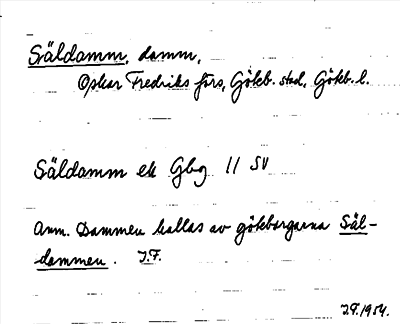 Säldamm, damm,
Oskar Fredriks förs, Göteb. stad, Göteb. l.
Säldamm ek Gbg 11 SV
Anm. Dammen kallas av göteborgarna Säl-
dammen. J.F.
J.F. 1954.